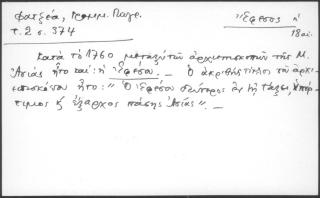 Φατζέα, Γραμμ. Πατρ.
τ. 2 σ. 374
Ἔφεσος ἡ
18 αἰ.
Κατὰ τὸ 1760 μεταξὺ τῶν ἀρχιεπισκοπῶν τῆς Μ.
Ἀσίας ἦτο καὶ: ἡ Ἐφέσου. — Ὁ ἀκριβὴς τίτλος τοῦ ἀρχι-
επισκόπου ἦτο: "Ὁ Ἐφέσου δεύτερος ἐν τῇ τάξει, ὑπέρ-
τιμος κ' ἔξαρχος πάσης Ἀσίας". —